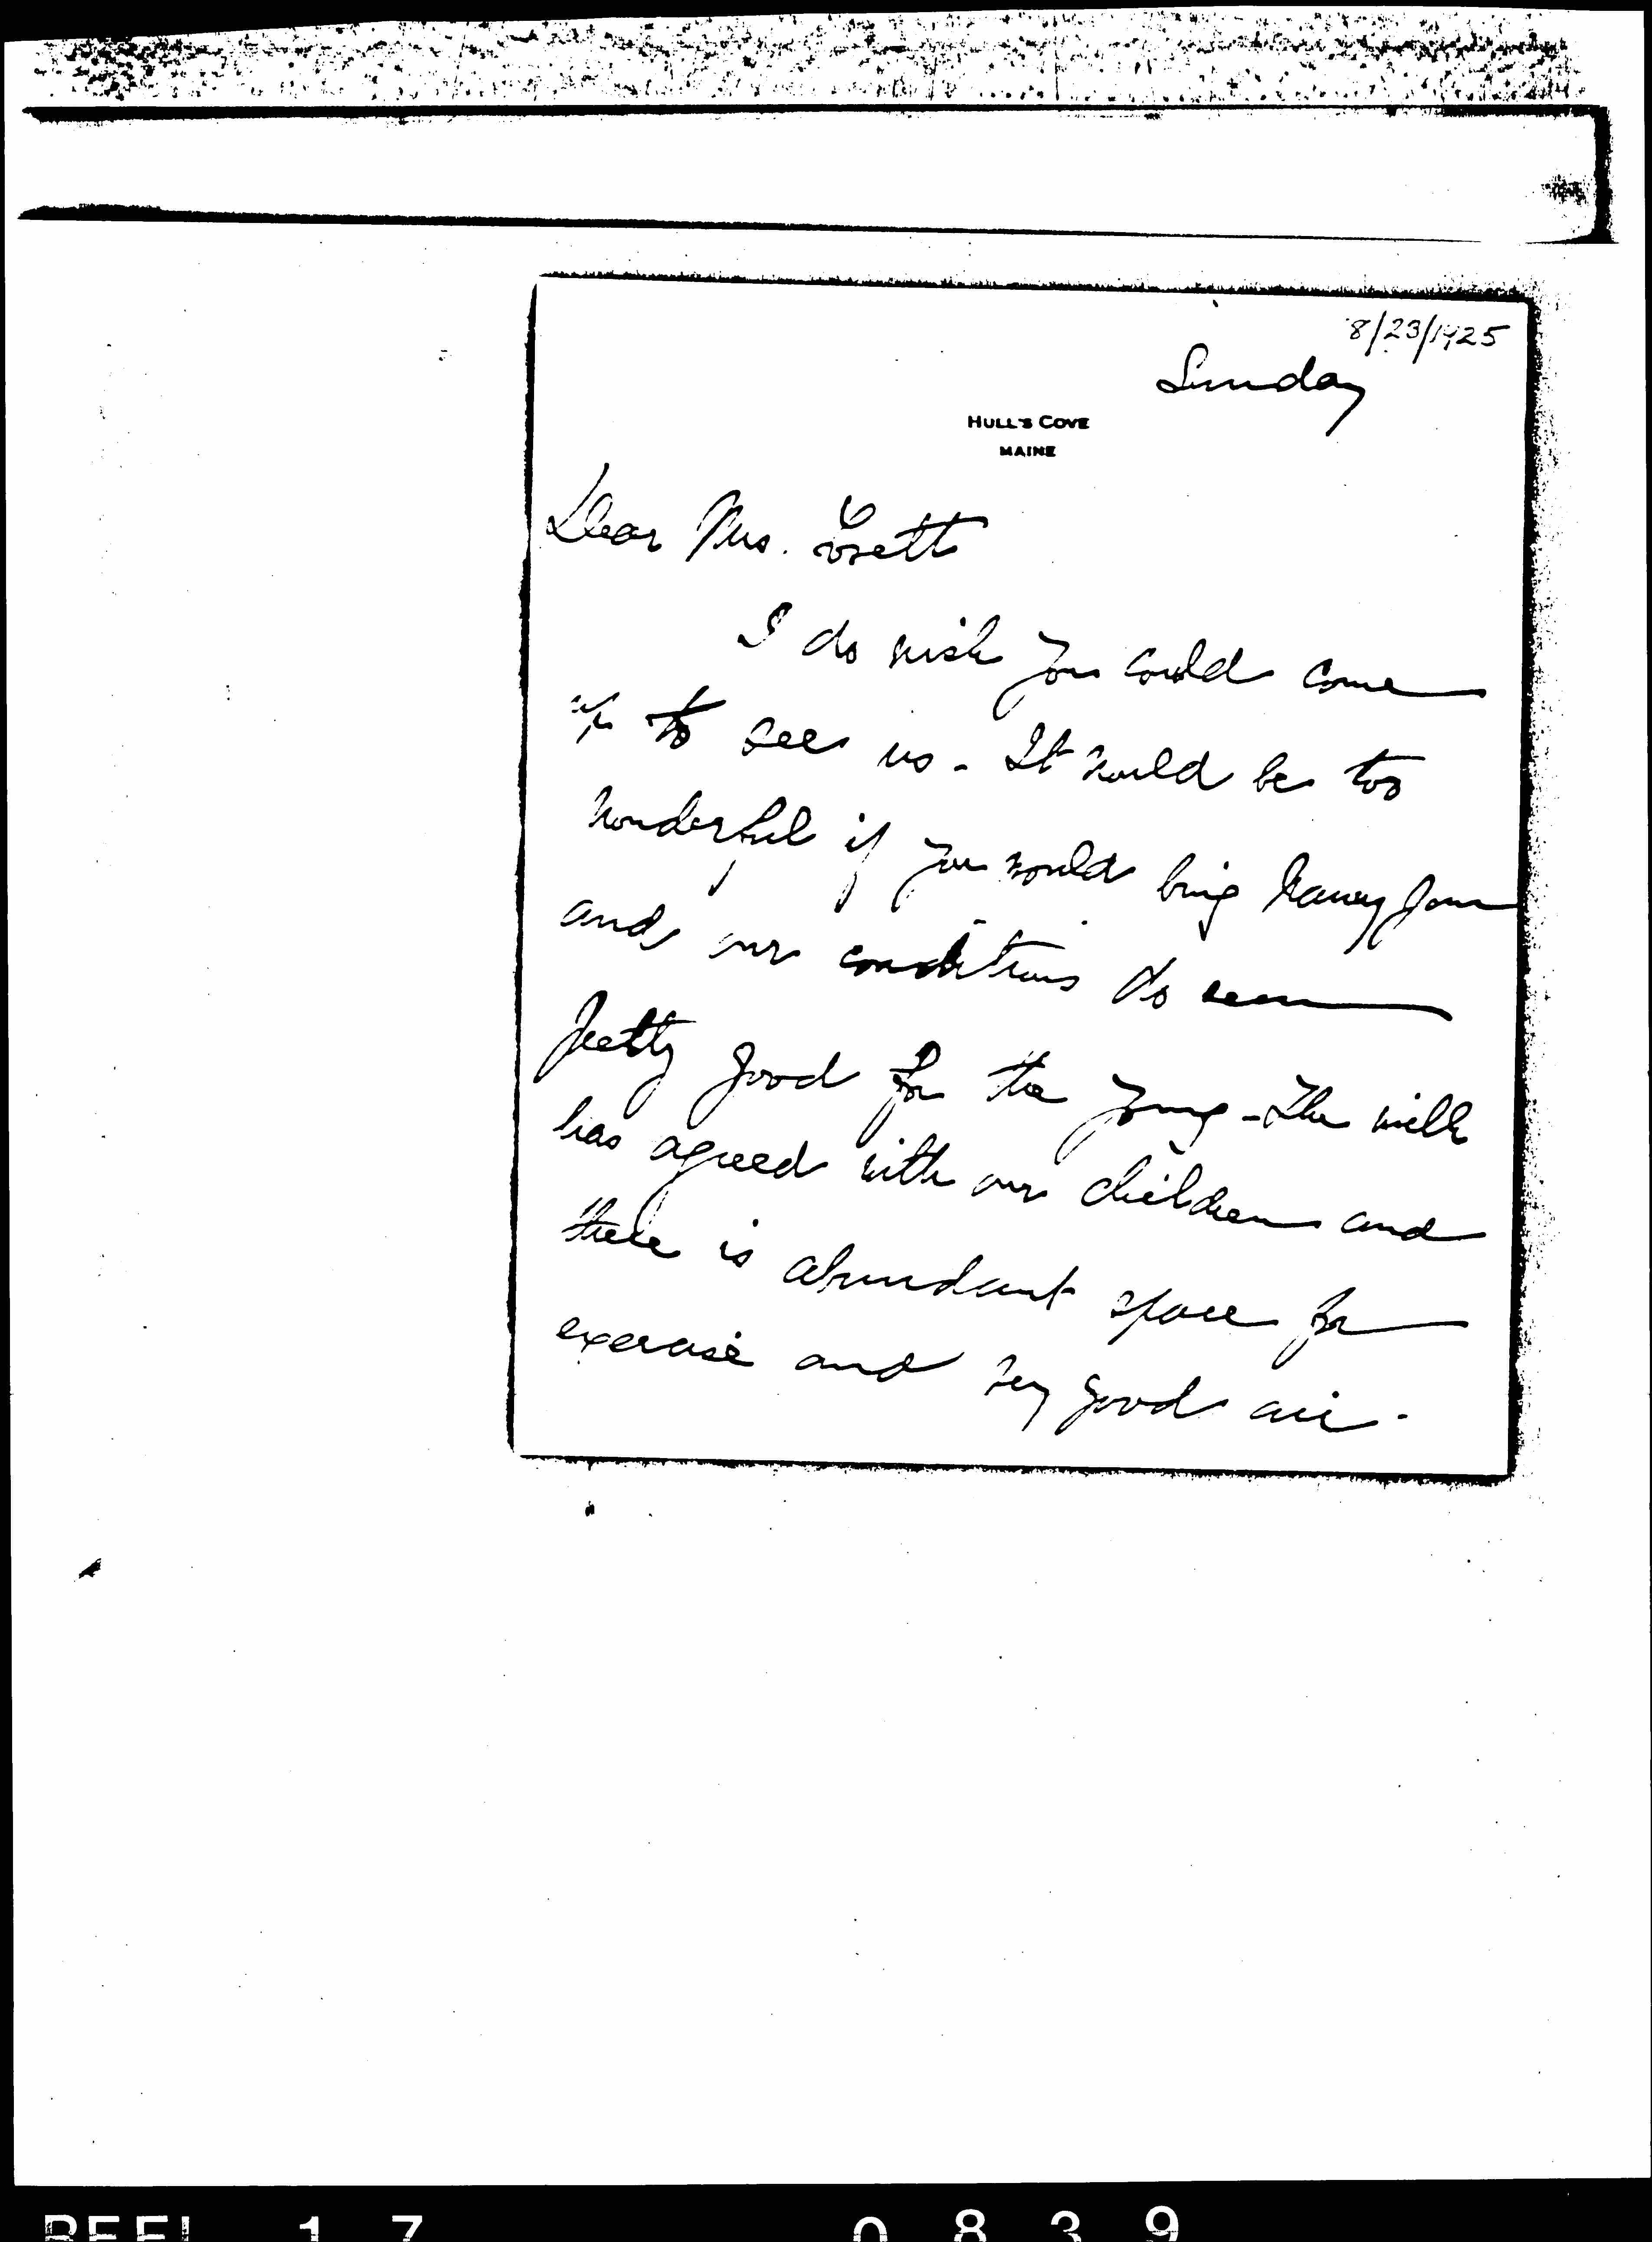 8/23/1925
Sunday
HULL'S COVE
MAINE
Dear Mrs. Lovett
I do wish you could come
up to see us - It would be too
wonderful if you would bring Nancy Jane
and our conditions do seem
pretty good for the young - The milk
has agreed with our children and
there is abundant space for
exercise and very good air.
REEL 17 0839